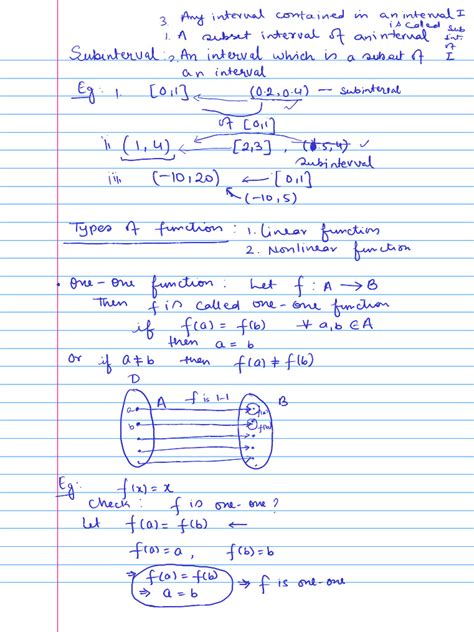 3. Any interval contained in an interval I
is called sub int. of I
1. A subset interval of an interval
Subinterval : 2. An interval which is a subset of
an interval
Eg: 1. [0,1] ← (0.2, 0.4) — subinterval
of [0,1]
ii (1, 4) ← [2,3] ,
subinterval
iii (-10, 20) ← [0,1]
(-10, 5)
Types of function : 1. Linear function
2. Nonlinear function
• One-One function : Let f : A → B
Then f is called one-one function
if f(a) = f(b) ∀ a,b ∈ A
then a = b
Or if a ≠ b then f(a) ≠ f(b)
D
A f is 1-1 B
a f(a)
b f(b)
Eg: f(x) = x
Check : f is one-one ?
Let f(a) = f(b) ←
f(a) = a , f(b) = b
⇒ f(a) = f(b)
⇒ a = b ⇒ f is one-one